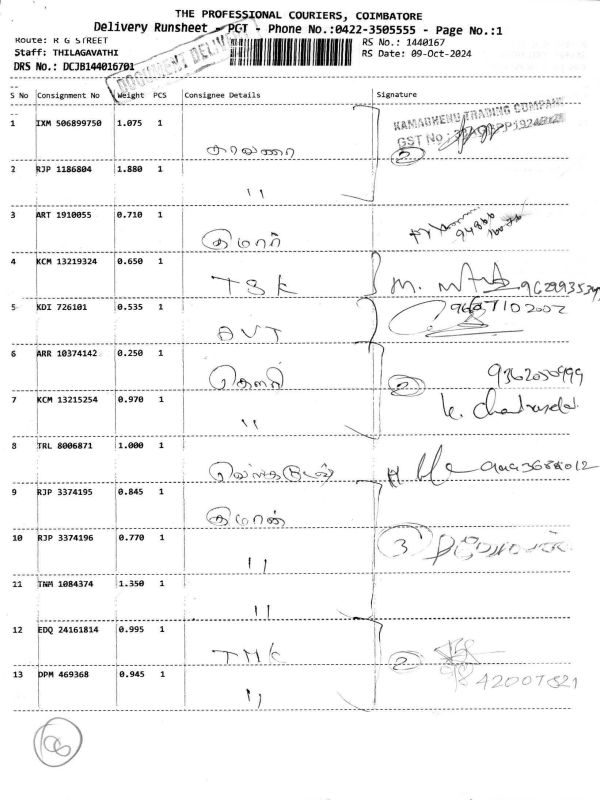 THE PROFESSIONAL COURIERS, COIMBATORE
Delivery Runsheet - PGT - Phone No.:0422-3505555 - Page No.:1
Route: R G STREET
RS No.: 1440167
Staff: THILAGAVATHI
RS Date: 09-Oct-2024
DRS No.: DCJB144016701
DOCUMENT DELIVERY
S No Consignment No Weight PCS Consignee Details Signature
KAMADHENU TRADING COMPANY
GST No :
1 IXM 506899750 1.075 1
2
2 RJP 1186804 1.880 1 "
3 ART 1910055 0.710 1 குமார்
4 KCM 13219324 0.650 1 TSK
5 KDI 726101 0.535 1 AVT
9687102002
6 ARR 10374142 0.250 1 கௌரி
2 9362050999
7 KCM 13215254 0.970 1 "
8 TRL 8006871 1.000 1
9 RJP 3374195 0.845 1
10 RJP 3374196 0.770 1 "
3
11 TNM 1084374 1.350 1 "
12 EDQ 24161814 0.995 1 TMK
2
13 DPM 469368 0.945 1 "